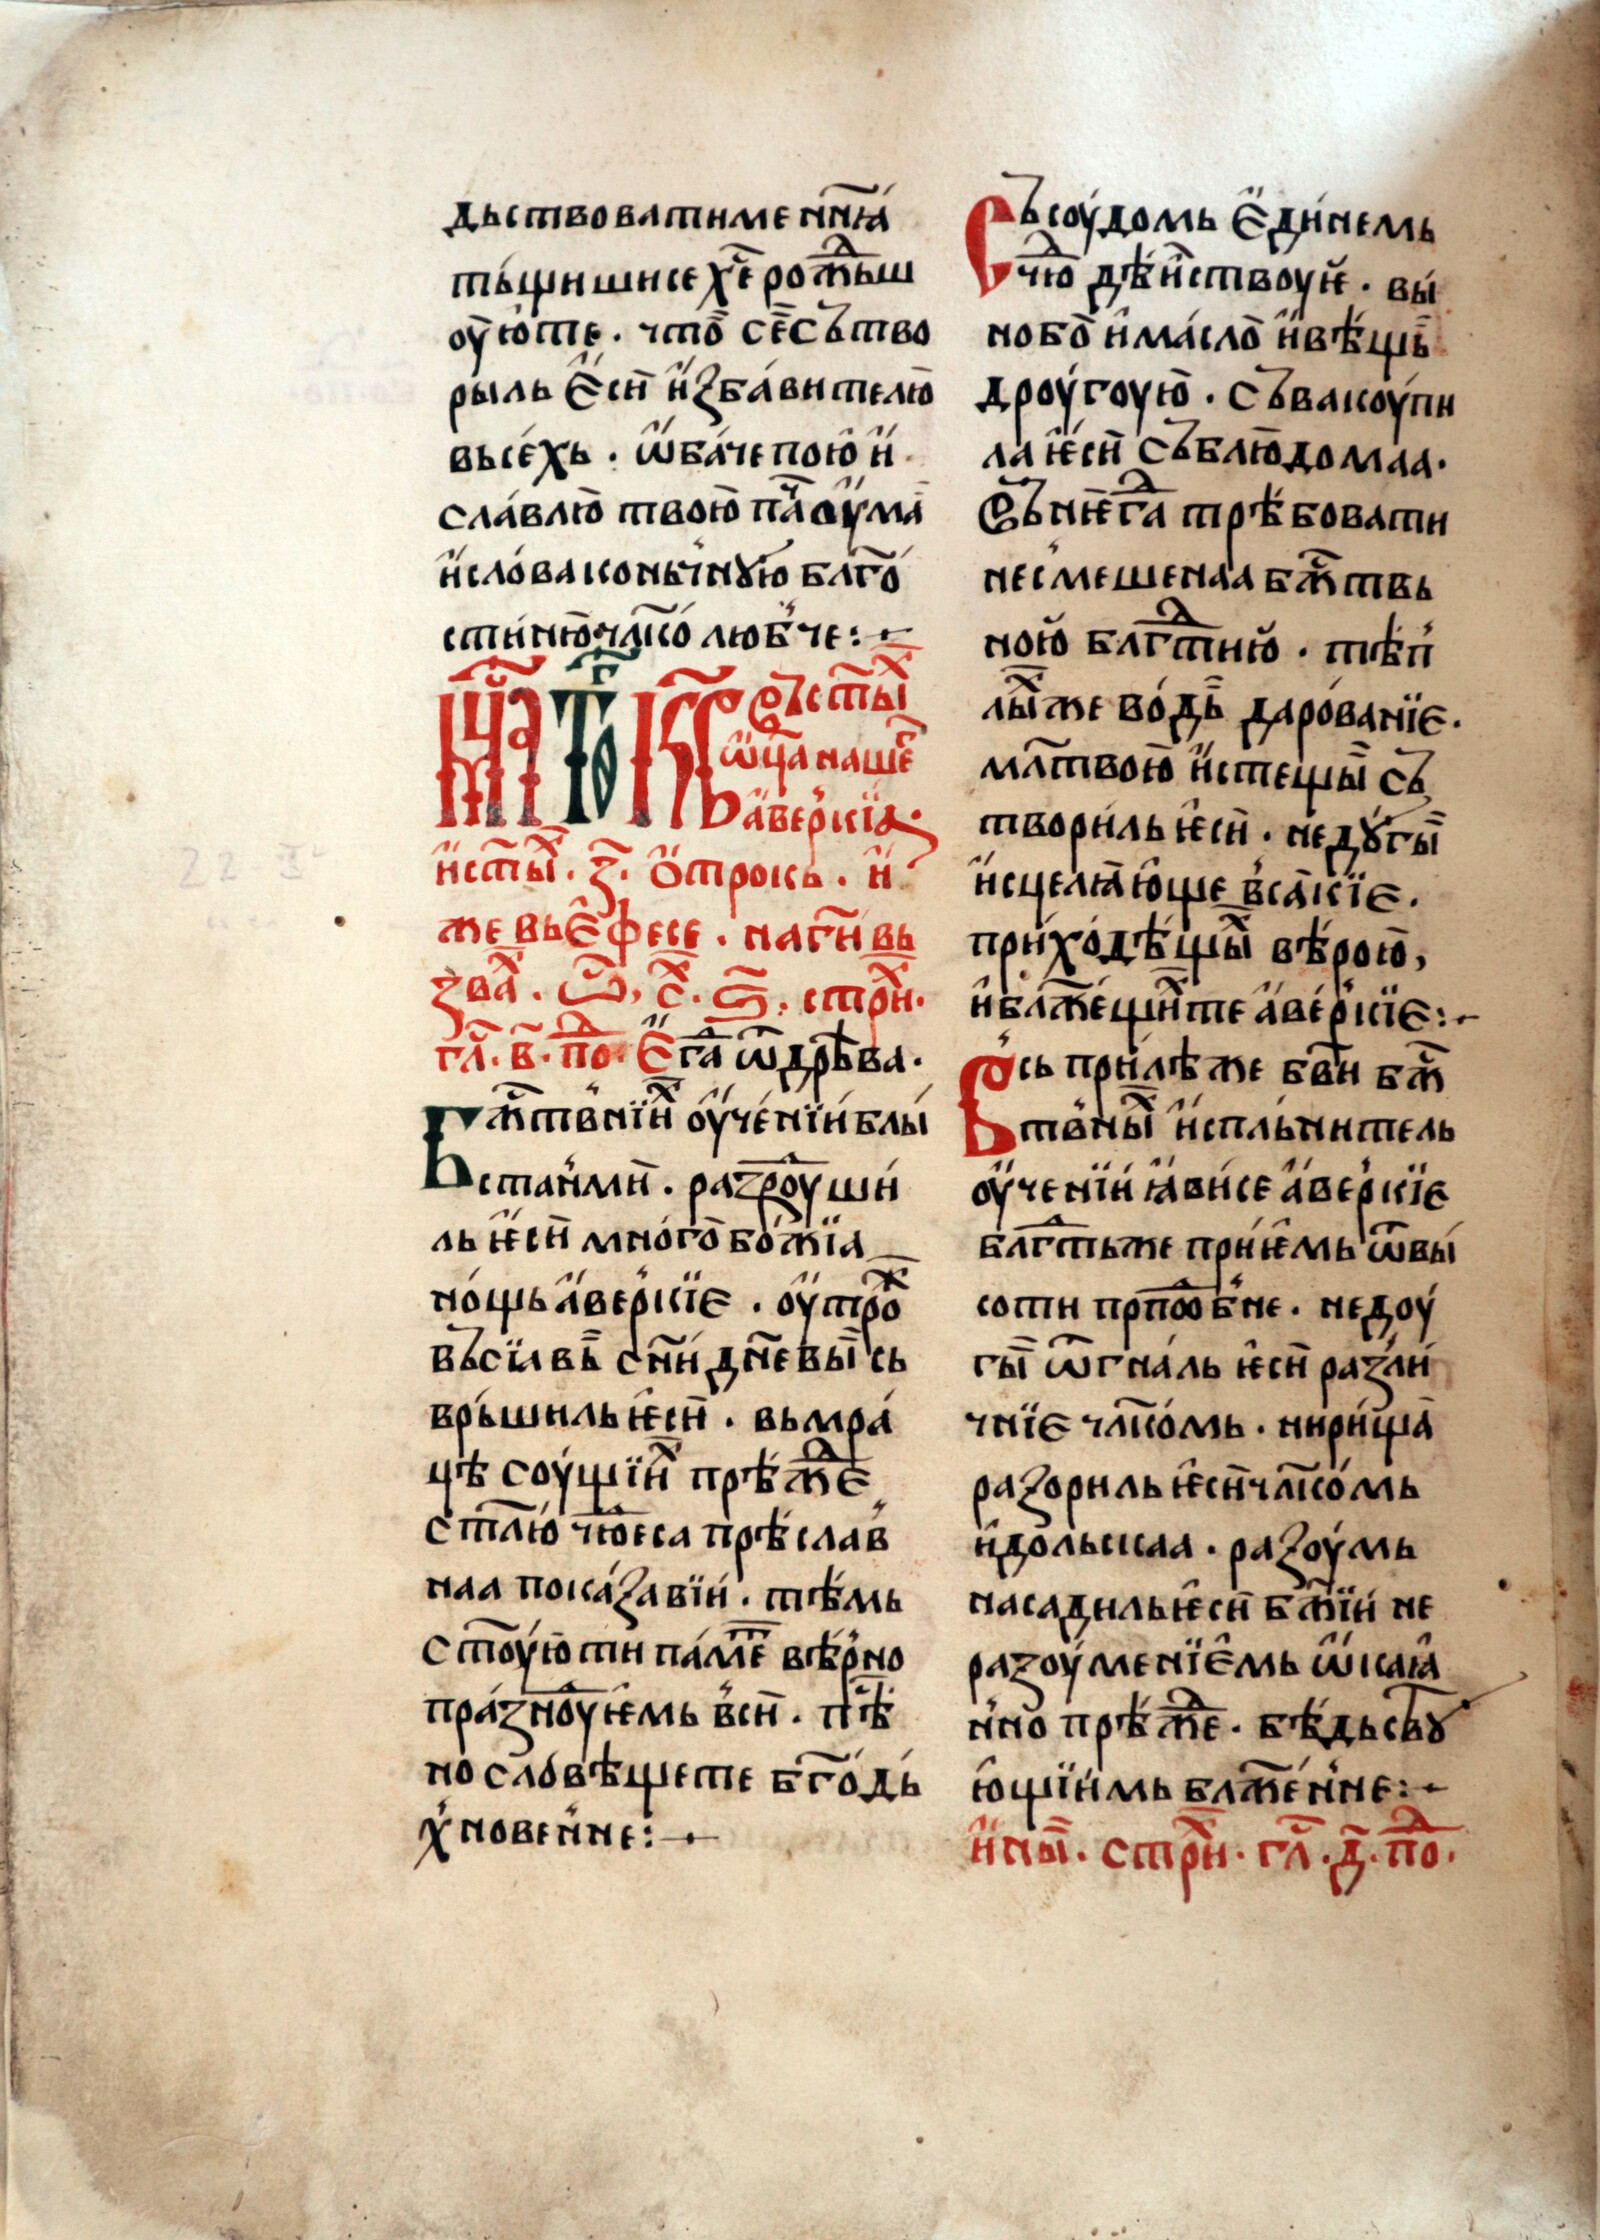 дьствоватиме нн҃ꙗ́
ты́щишисе х҃ероⷤ҇ьш
оу҆ю҆те · что̀ сѐсътво
рыль є҆сѝ и҆збавителю̀
вьсе́хь · ѡ҆ба́че пою̀ и҆
сла́влю̀ твою̀ паⷱ҇ оу҆ма̀
и҆сло́ваконьчнꙋю̀ блг҃о́
сти́ню̀чл҃ко́ люб́че :·
Мцⷭ҇а то̀гоⷤ кв҃ вьст҃ыⷯ
ѡ҆ц҃а нашеⷢ҇
а҆ве́ркїа ·
и҆ст҃ыⷯ · з҃ · ѻ҆трокь · и҆
же вьє҆фесе · нагн҃ вь
зваⷯ · ст҃иⷯ · ѕ҃ · стрⷯи ·
гл҃ · в҃ · поⷣ · є҆гⷣа ѿдрѣ́ва ·
Бжⷭ҇твнїиⷯ оу҆че́нїи́ блы́
стан́мѝ · разⷣроуши́
ль ѥ҆сѝ мно́го̀ бо́жїа
но́щь а҆ве́ркїє · оу҆троⷯ
въсїавь̀ сн҃и́ дн҃евыⷨ сь
врь́шиль ѥ҆сѝ · вьмра́
цѣ соу́щїиⷯ прѣⷤⷣє
ст҃лю́ чю̀ⷣеса прѣслав́
наа пока́завїи́ · тѣ́мь
ст҃оую̀ ти па́меⷮ вѣ́рно
пра́зноⷣуѥ҆мь в́сѝ · пⷭ҇ѣ
но сло́вѣщете бг҃о́дь́
х́новен́не :·
Съсоу́домь є҆ди́немь
чⷣю дѣи́ствоуѝ · вы́
но бо̀ и҆ма́сло̀ и҆вѣ́щь̀
дроу́гоую̀ · съвакоу́пи
ла ѥ҆сѝ съблю̀домаа ·
въне́гⷣа трѣ́бовати
несмешенаа бжⷭ҇твь
ною̀ блгⷣ҇тию̀ · тѣп́
лыⷯже во́дь̀ даро́ванїє ·
млт҃вою̀ и҆стещы̀ съ
твори́ль ѥ҆сѝ · недꙋ́гы̀
и҆сцелꙗ̀ю҆ще в́са̀кїє ·
при́хо́дѣ́щыⷯ вѣ́рою̀,
и҆блже́щиⷯте а҆ве́ркїє :·
Вьсь при́лѣже бв҃и бжⷭ҇
тв́ныⷯ и҆спль́нитель
оу҆че́нїи́ ꙗ҆ви́се а҆ве́ркїє
блгⷣ҇тьже при́ѥ҆мь ѿвы́
соти прпⷣоб́не · недоу́
гы̀ ѿгна́ль ѥ҆сѝ разли́
чнїє чл҃ко́мь · кири́ща̀
разориль ѥ҆сѝчл҃ко́мь
и҆дольскаа · разоу́мь
насадиль ѥ҆сѝ бжⷭ҇їи́ не
разоу́менїє҆мь ѡ҆каꙗ̀
н́но прѣⷤⷣе · бѣ́дьствꙋ
ю҆щїи́мь блже́н́не :·
и҆ны̀ · стрⷯи · гл҃ · д҃ · поⷣ ·